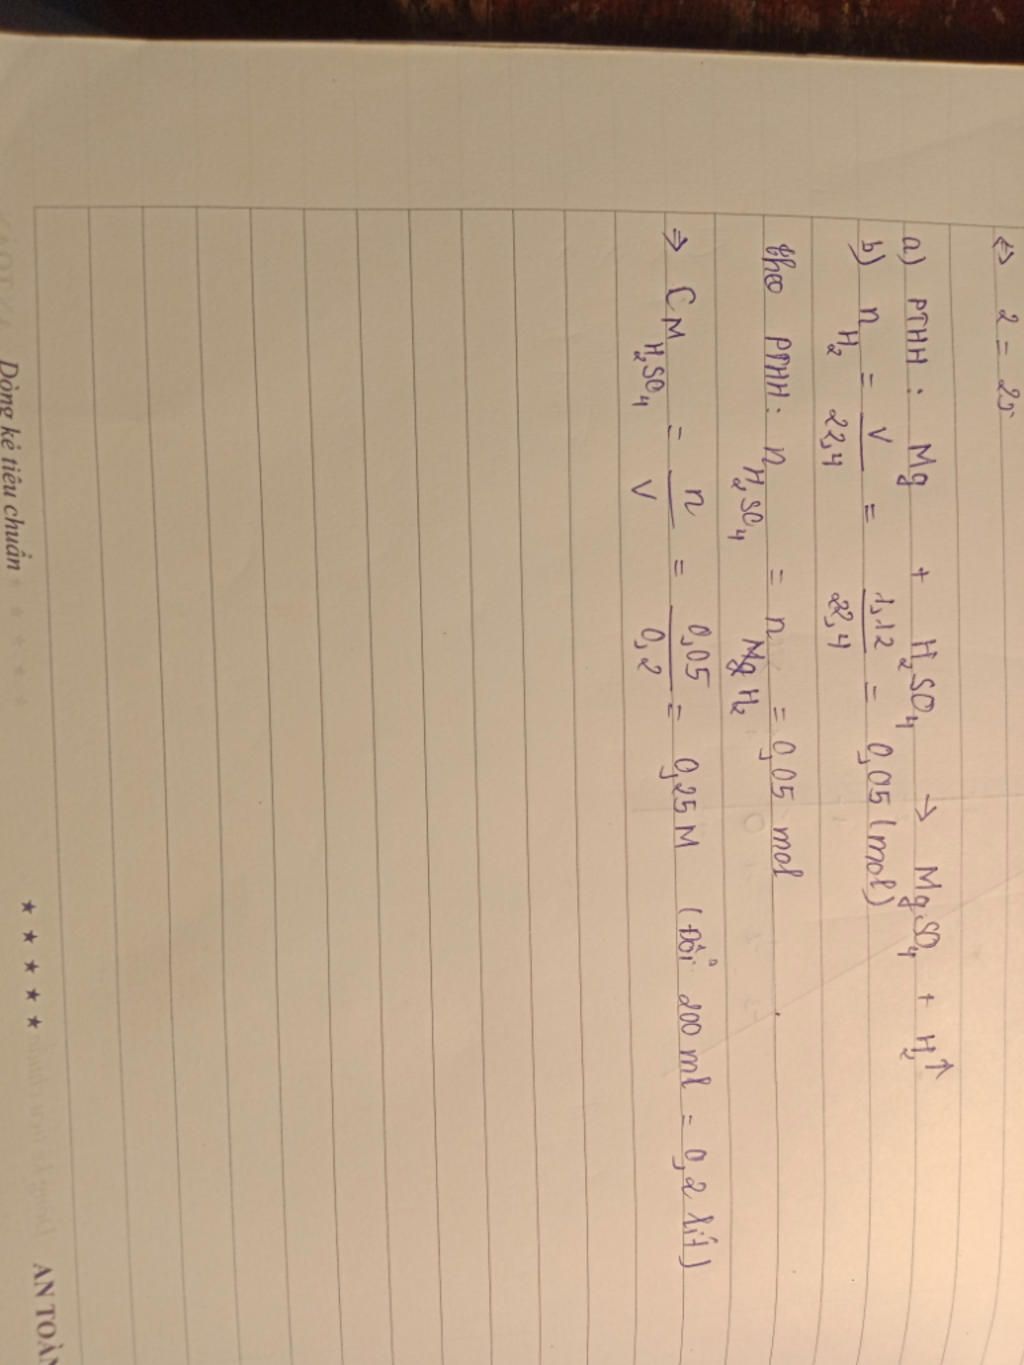 ⇔ 2 = 25
a) PTHH: Mg + H₂SO₄ → MgSO₄ + H₂↑
b) n H₂ = V/22,4 = 1,12/22,4 = 0,05 (mol)
theo PTHH: n H₂SO₄ = n H₂ = 0,05 mol
⇒ CM H₂SO₄ = n/V = 0,05/0,2 = 0,25M (Đổi 200 ml = 0,2 lít)
Dòng kẻ tiêu chuẩn ★★★★★ AN TOÀN